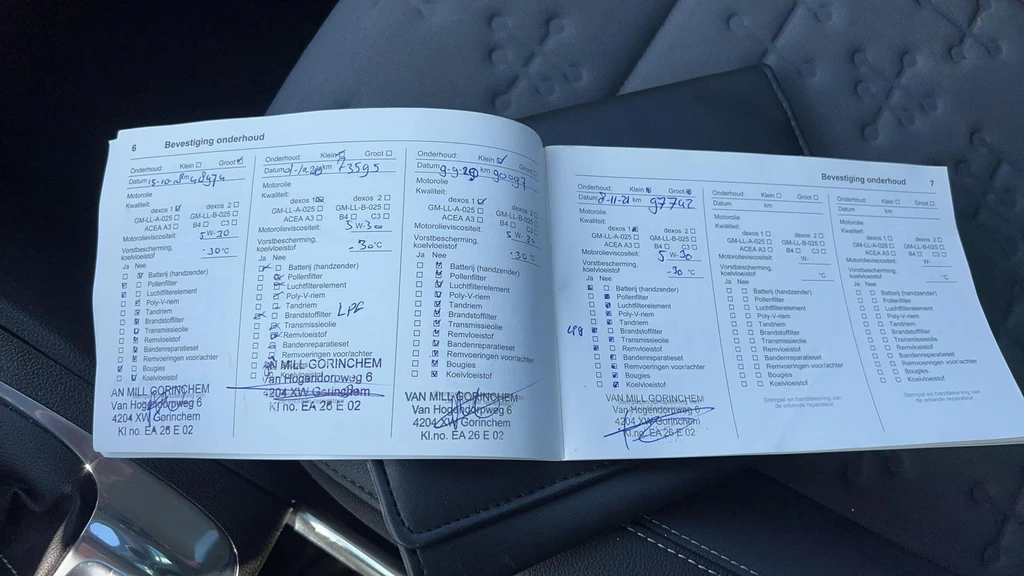 6 Bevestiging onderhoud
Onderhoud: Klein Groot
Datum 15-10- km 48974
Motorolie
Kwaliteit:
dexos 1 dexos 2
GM-LL-A-025 GM-LL-B-025
ACEA A3 B4 C3
Motorolieviscositeit: 5 W-30
Vorstbescherming, koelvloeistof -30 °C
Ja Nee
Batterij (handzender)
Pollenfilter
Luchtfilterelement
Poly-V-riem
Tandriem
Brandstoffilter
Transmissieolie
Remvloeistof
Bandenreparatieset
Remvoeringen voor/achter
Bougies
Koelvloeistof
AN MILL GORINCHEM
Van Hogendorpweg 6
4204 XW Gorinchem
Kl.no. EA 26 E 02
Onderhoud: Klein Groot
Datum km 73595
Motorolie
Kwaliteit:
dexos 1 dexos 2
GM-LL-A-025 GM-LL-B-025
ACEA A3 B4 C3
Motorolieviscositeit: 5 W-30
Vorstbescherming, koelvloeistof -30 °C
Ja Nee
Batterij (handzender)
Pollenfilter
Luchtfilterelement
Poly-V-riem
Tandriem
Brandstoffilter
Transmissieolie
Remvloeistof
Bandenreparatieset
Remvoeringen voor/achter
AN MILL GORINCHEM
an Hogendorpweg 6
4204 XW Gorinchem
Kl no. EA 26 E 02
Onderhoud: Klein Groot
Datum 9-9-20 km 90997
Motorolie
Kwaliteit:
dexos 1 dexos 2
GM-LL-A-025 GM-LL-B-025
ACEA A3 B4 C3
Motorolieviscositeit: 5 W-30
Vorstbescherming, koelvloeistof -30 °C
Ja Nee
Batterij (handzender)
Pollenfilter
Luchtfilterelement
Poly-V-riem
Tandriem
Brandstoffilter
Transmissieolie
Remvloeistof
Bandenreparatieset
Remvoeringen voor/achter
Bougies
Koelvloeistof
VAN MILL GORINCHEM
Van Hogendorpweg 6
4204 XW Gorinchem
Kl.no. EA 26 E 02
Bevestiging onderhoud 7
Onderhoud: Klein Groot
Datum 2-11-21 km 97742
Motorolie
Kwaliteit:
dexos 1 dexos 2
GM-LL-A-025 GM-LL-B-025
ACEA A3 B4 C3
Motorolieviscositeit: 5 W-30
Vorstbescherming, koelvloeistof -30 °C
Ja Nee
Batterij (handzender)
Pollenfilter
Luchtfilterelement
Poly-V-riem
Tandriem
LPG Brandstoffilter
Transmissieolie
Remvloeistof
Bandenreparatieset
Remvoeringen voor/achter
Bougies
Koelvloeistof
VAN MILL GORINCHEM
Van Hogendorpweg 6
4204 XW Gorinchem
Kl.no. EA 26 E 02
Onderhoud: Klein Groot
Datum km
Motorolie
Kwaliteit:
dexos 1 dexos 2
GM-LL-A-025 GM-LL-B-025
ACEA A3 B4 C3
Motorolieviscositeit: W-
Vorstbescherming, koelvloeistof °C
Ja Nee
Batterij (handzender)
Pollenfilter
Luchtfilterelement
Poly-V-riem
Tandriem
Brandstoffilter
Transmissieolie
Remvloeistof
Bandenreparatieset
Remvoeringen voor/achter
Bougies
Koelvloeistof
Stempel en handtekening van
de erkende reparateur
Onderhoud: Klein Groot
Datum km
Motorolie
Kwaliteit:
dexos 1 dexos 2
GM-LL-A-025 GM-LL-B-025
ACEA A3 B4 C3
Motorolieviscositeit: W-
Vorstbescherming, koelvloeistof °C
Ja Nee
Batterij (handzender)
Pollenfilter
Luchtfilterelement
Poly-V-riem
Tandriem
Brandstoffilter
Transmissieolie
Remvloeistof
Bandenreparatieset
Remvoeringen voor/achter
Bougies
Koelvloeistof
Stempel en handtekening van
de erkende reparateur